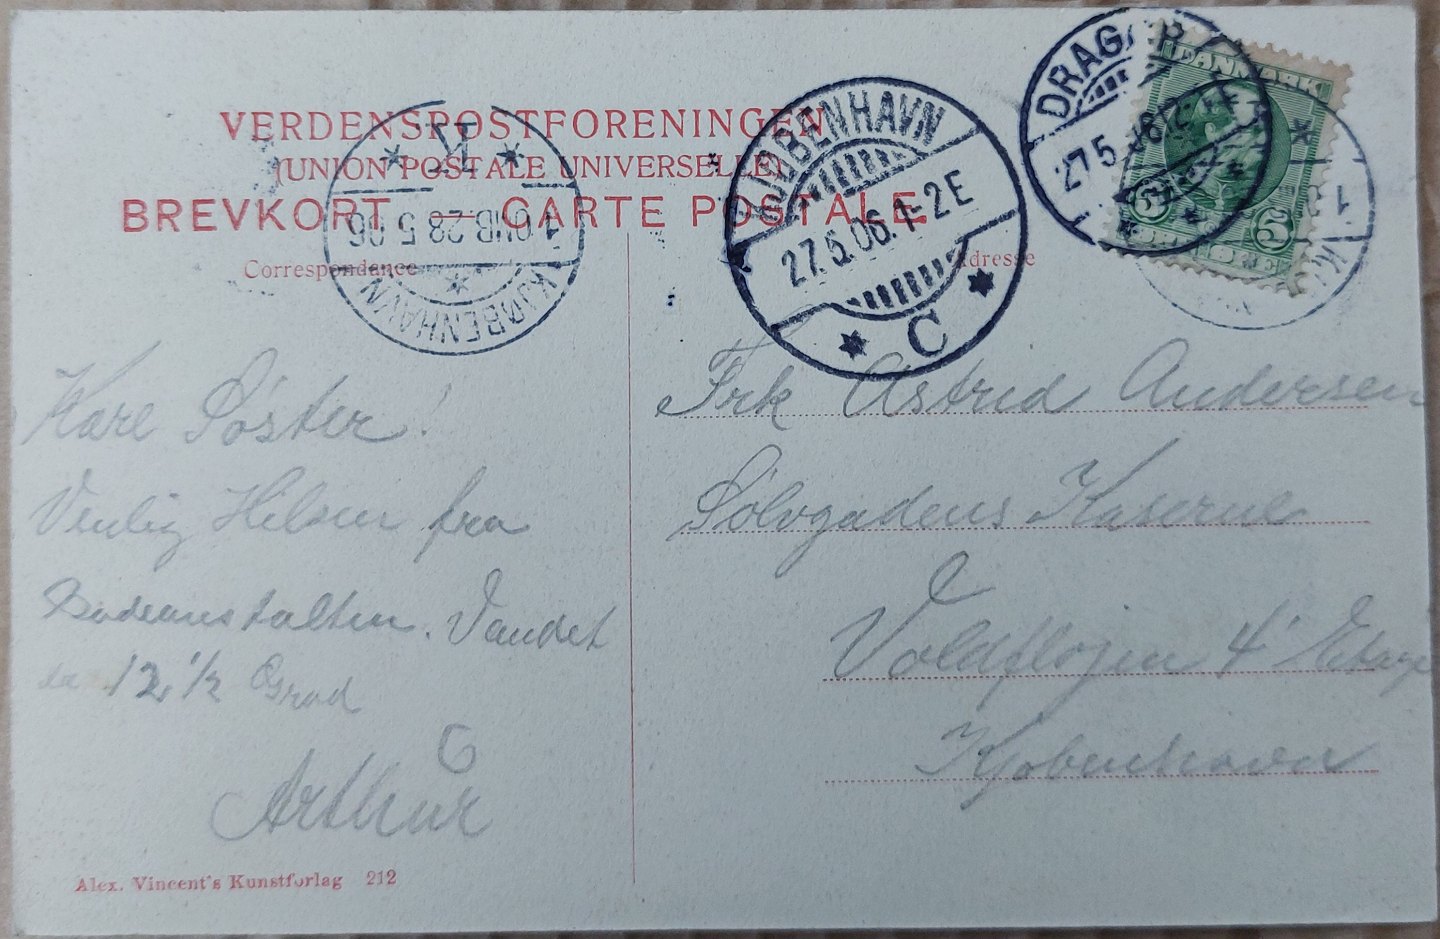 VERDENSPOSTFORENINGEN
(UNION POSTALE UNIVERSELLE)
BREVKORT — CARTE POSTALE
Correspondance
Adresse
K
1.OMB 28.5.06
KJØBENHAVN
KJØBENHAVN
27.5.06. 1-2E
C
DRAGØR
27.5.06
DANMARK
5 5
ØRE
1
K
Kære Søster!
Venlig Hilsen fra
Badeanstalten. Vandet
er 12 1/2 Grad
Arthur
Frk Astrid Andersen
Sølvgadens Kaserne
C
Voldfløjen 4' Etage
Kjøbenhavn
Alex. Vincent's Kunstforlag 212